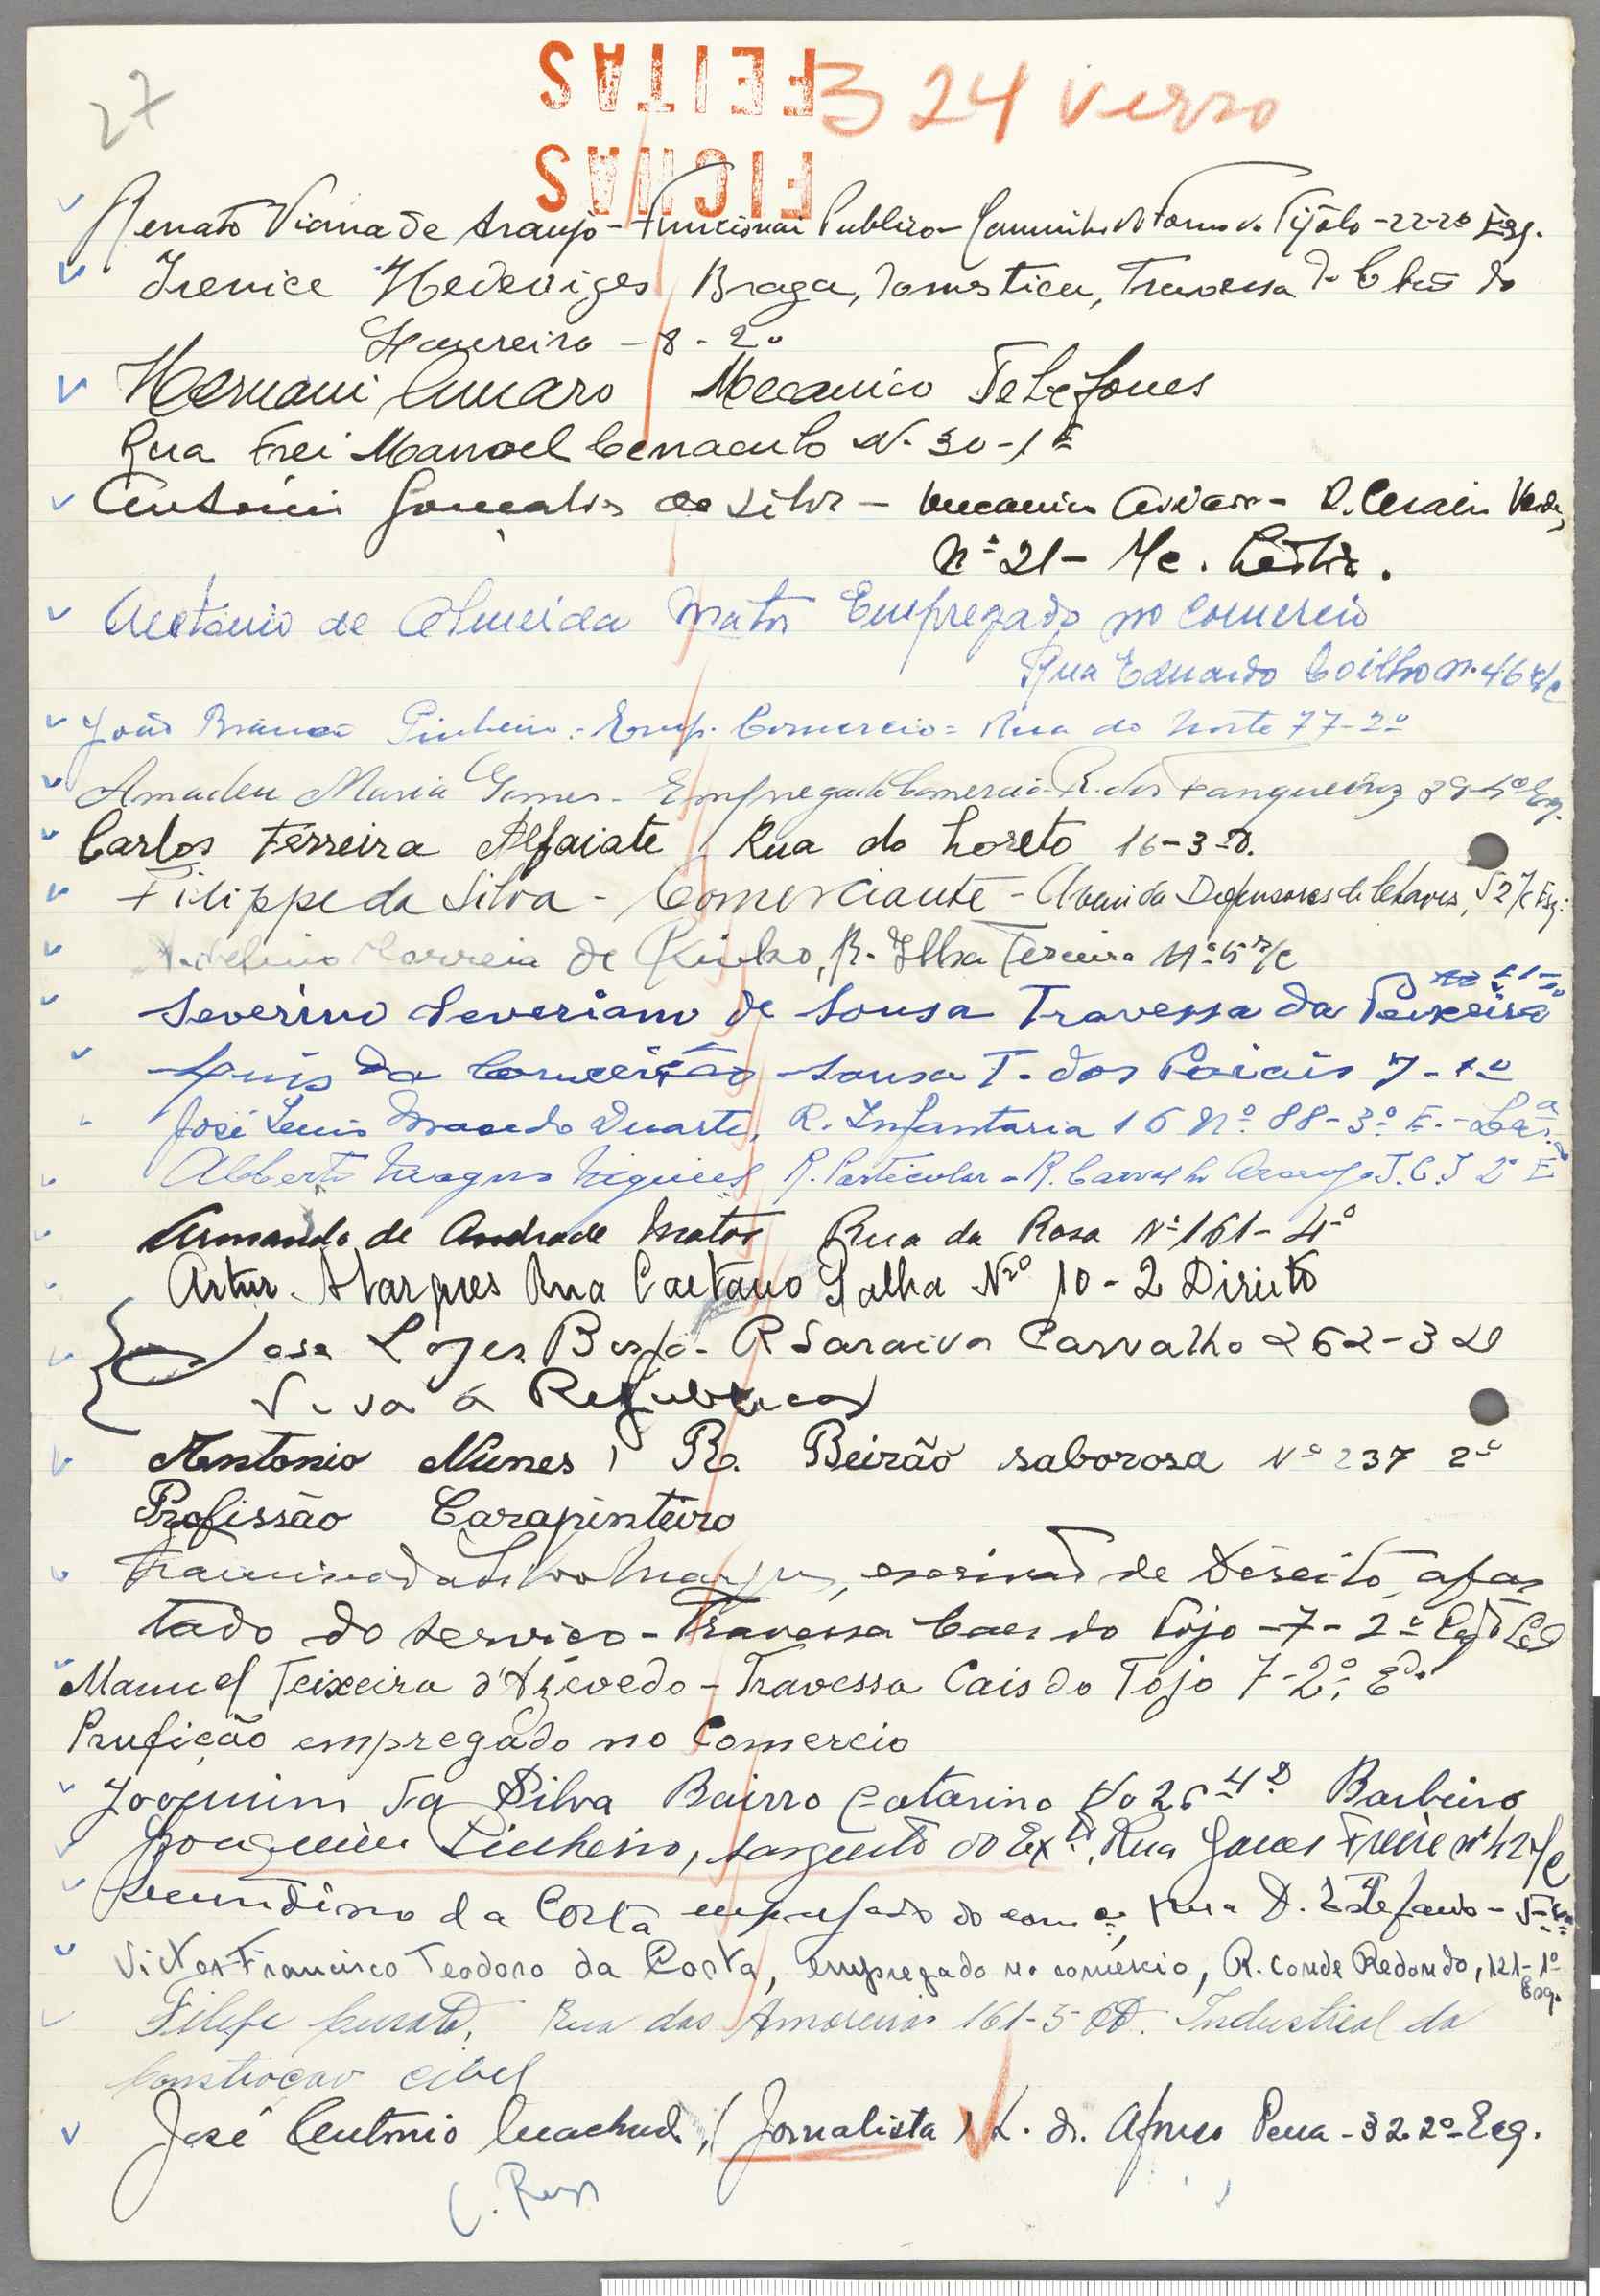 27
FICHAS
FEITAS
B 24 verso
Renato Viana de Araujo - Funcionar Publico - Caminho do Forno do Tijolo - 22-2º Esq.
Irenice Hedeviges Braga, domestica, Travessa do do
- 8 - 2º
Hernani Amaro Mecanico Telefones
Rua Frei Manoel Cenaculo N. 30-1º
António Gonçalves da Silva - R. Cesário Verde,
Nº 21 -
António de Almeida Matos Empregado no Comercio
Rua Eduardo Coilho n. 46 r/c
João Pinheiro: Emp. Comercio = Rua do Norte 77-2º
Amadeu Maria Gomes - Empregado Comercio - R. dos Fanqueiros
Carlos Ferreira Alfaiate Rua do Loreto 16-3-D.
Filippe da Silva - Comerciante - Avenida Defensores de Chaves,
Correia de Pinho, R. Ilha Terceira Nº 5 r/c
Severino Severiano de Sousa Travessa da Peixeira
Luis da Conceição Sousa T. dos Poiais 7-1º
José Luis Macedo Duarte, R. Infantaria 16 Nº 88-3º E.
Alberto Magno R. Particular - R. Carvalho Araujo J.C.J 2º E
Armando de Andrade Matos Rua da Rosa Nº 161-4º
Artur Marques Rua Caetano Palha Nº 10-2 Direito
Jose Lopes R Saraiva Carvalho 262-3
Viva a Republica
Antonio Nunes, R. Beirão saborosa Nº 237 2º
Profissão Carapinteiro
da Silva escrivão de Direito, afas
tado do serviço - Travessa Caes do Tojo - 7 - 2º
Manuel Teixeira d'Azevedo - Travessa Cais do Tojo 7-2º, E.do
Prufição empregado no Comercio
Joaquim da Silva Bairro Catarino No 26 4º D Barbeiro
Joaquim Pinheiro, sargento do Ex.to, Rua Gomes Freire
Secundino da Costa empregado do com.º, Rua D. Estefania -
Victor Francisco Teodoro da Costa, empregado no comércio, R. Conde Redondo, 121-1º
Esq.
Filipe Rua das Amoreiras 161-5 Industrial da
Construçao cibel
José Antonio Machado, (Jornalista) R. dr. Afonso Pena - 32 2º Esq.